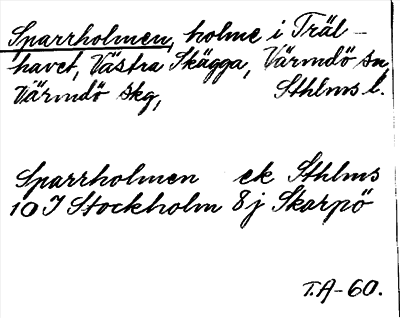 Sparrholmen, holme i Träl-
havet, Västra Skägga, Värmdö sn
Värmdö skg, Sthlms l.
Sparrholmen ek Sthlms
10 I Stockholm 8 j Skarpö
T.A-60.